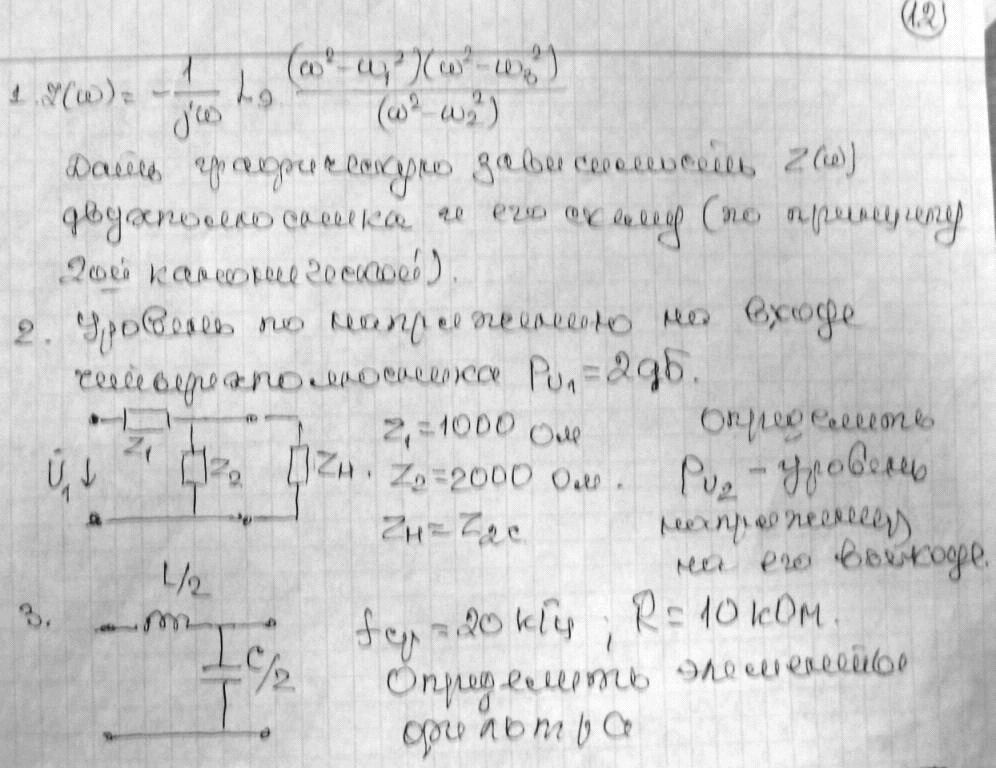 (12)
1. Z(ω) = - 1/jω L∂ (ω² - ω₁²)(ω² - ω₃²)/(ω² - ω₂²)
Дать графическую зависимость Z(ω)
двухполюсника и его схему (по принципу
2ой канонической).
2. Уровень по напряжению на входе
четырехполюсника Pu₁ = 2дБ.
Z₁ = 1000 Ом Определить
U̇₁ Z₁ Z₂ Zн. Z₂ = 2000 Ом. Pu₂ - уровень
Zн = Z₂с напряжения
на его выходе.
3. L/2 fср = 20 кГц; R = 10 кОм.
C/2 Определить элементы
фильтра